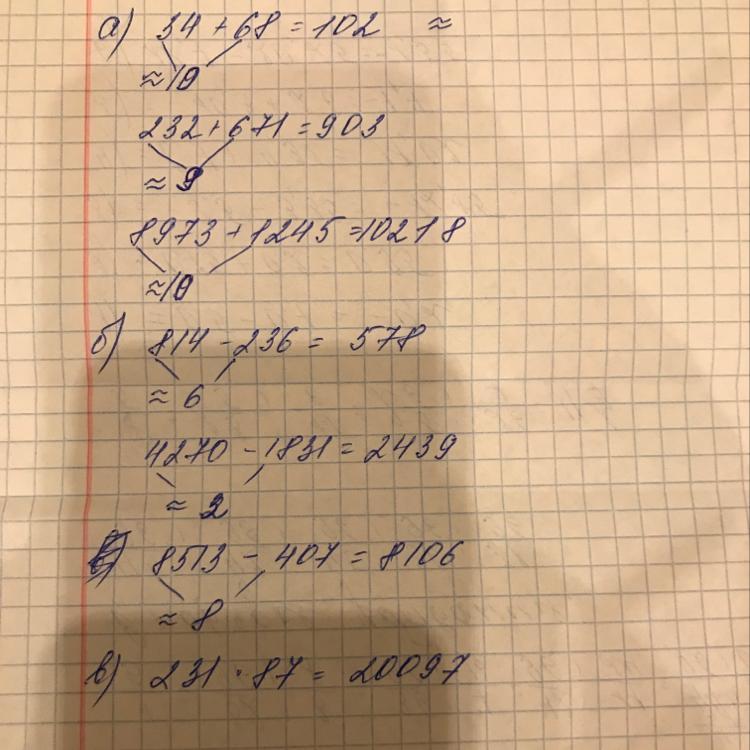 а) 34 + 68 = 102 ≈
≈ 10
232 + 671 = 903
≈ 9
8973 + 1245 = 10218
≈ 10
б) 814 - 236 = 578
≈ 6
4270 - 1831 = 2439
≈
8513 - 407 = 8106
≈ 8
в) 231 · 87 = 20097